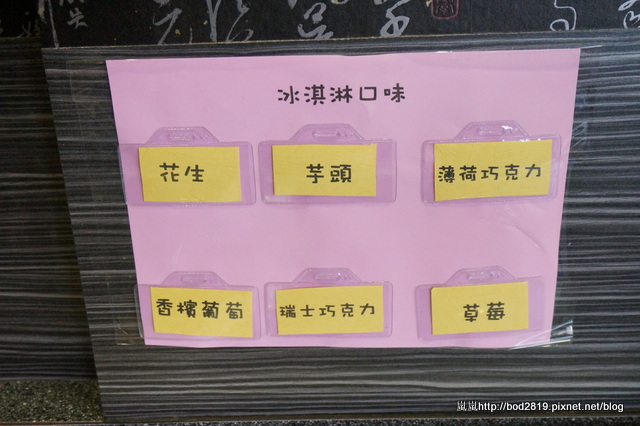 冰淇淋口味
花生
芋頭
薄荷巧克力
香檳葡萄
瑞士巧克力
草莓
嵐嵐http://bod2819.pixnet.net/blog